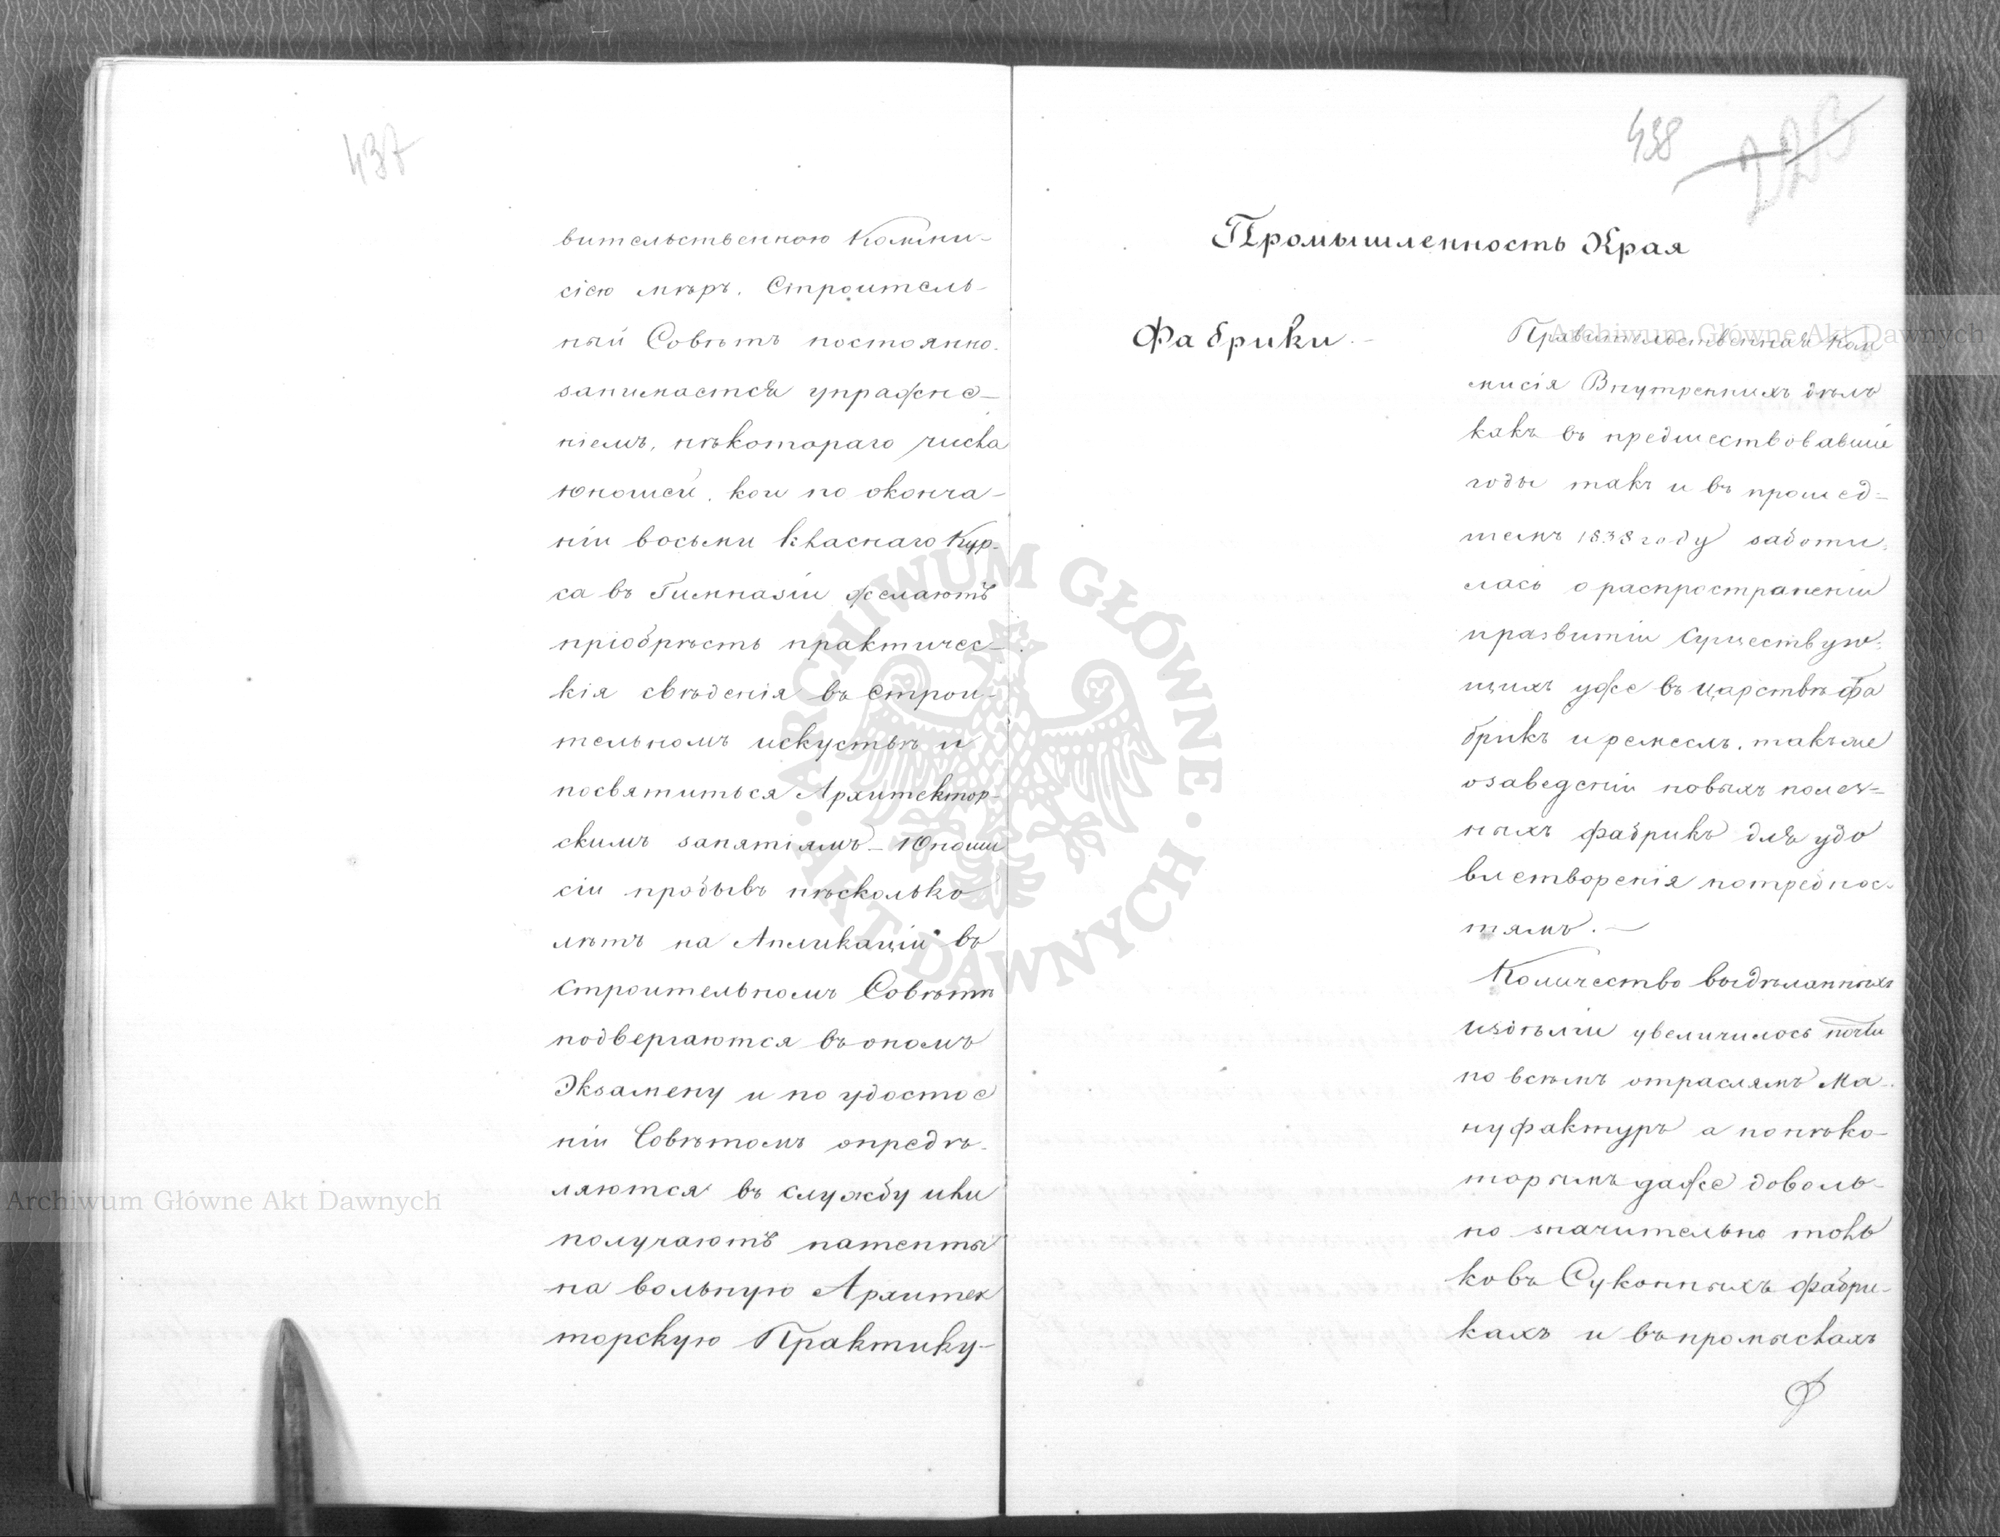 437
вительственною Комми-
сіею мѣръ. Строитель-
ный Совѣтъ постоянно.
занимается упражне-
ніемъ, нѣкотораго числа
юношей, кои по оконча-
ніи восьми класнаго Кур-
са въ Гимназіи желаютъ
пріобрѣсть практичес-
кія свѣденія въ строи-
тельномъ искуствѣ и
посвятиться Архитектор-
скимъ занятіямъ – Юноши
сіи пробывъ нѣсколько
лѣтъ на Апликаціи въ
строительномъ Совѣтѣ
подвергаются въ ономъ
Экзамену и по удостое
ніи Совѣтомъ опредѣ-
ляются въ службу или
получаютъ патенты
на вольную Архитек
торскую Практику-
438
223
Промышленность Края
Фабрики.-
Правительственная Ком
мисія Внутреннихъ дѣлъ
какъ въ предшествовавшіе
годы такъ и въ прошед-
шемъ 1838 году заботи-
лась о распространеніи
и развитіи существую-
щихъ уже въ Царствѣ фа
брикъ и ремеслъ, такъ же
о заведеніи новыхъ полез-
ныхъ фабрикъ для удо
влетворенія потребнос-
тямъ. –
Количество выдѣланныхъ
издѣлій увеличилось почти
по всѣмъ отраслямъ Ма-
нуфактуръ а по нѣко-
торымъ даже доволь-
но значительно толь
ко въ Суконныхъ фабри-
кахъ и въ промыслахъ
Archiwum Główne Akt Dawnych
Archiwum Główne Akt Dawnych
ARCHIWUM GŁÓWNE · AKT DAWNYCH ·